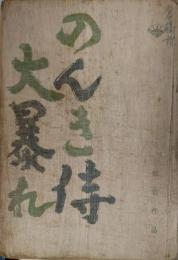 のんき侍
大暴れ